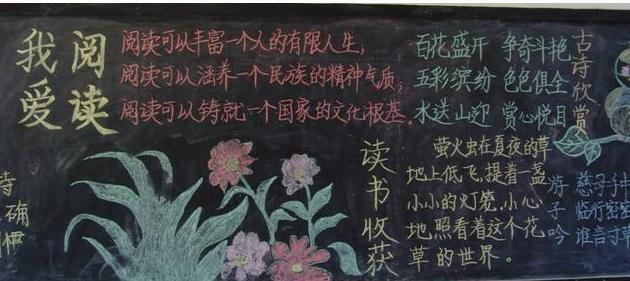 我爱阅读
阅读可以丰富一个人的有限人生；
阅读可以涵养一个民族的精神气质；
阅读可以铸就一个国家的文化根基。
百花盛开 争奇斗艳
五彩缤纷 色色俱全
水送山迎 赏心悦目
古诗欣赏
读书收获
萤火虫在夏夜的草
地上低飞，提着一盏
小小的灯笼，小心
地照看着这个花
草的世界。
游子吟
慈母手中
临行密密
谁言寸草
诗
确